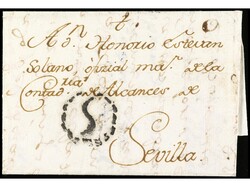 A Dn. Honorio Estevan
Solano ofizial mar. de la
Contadria. de Alcances de
S
Sevilla.